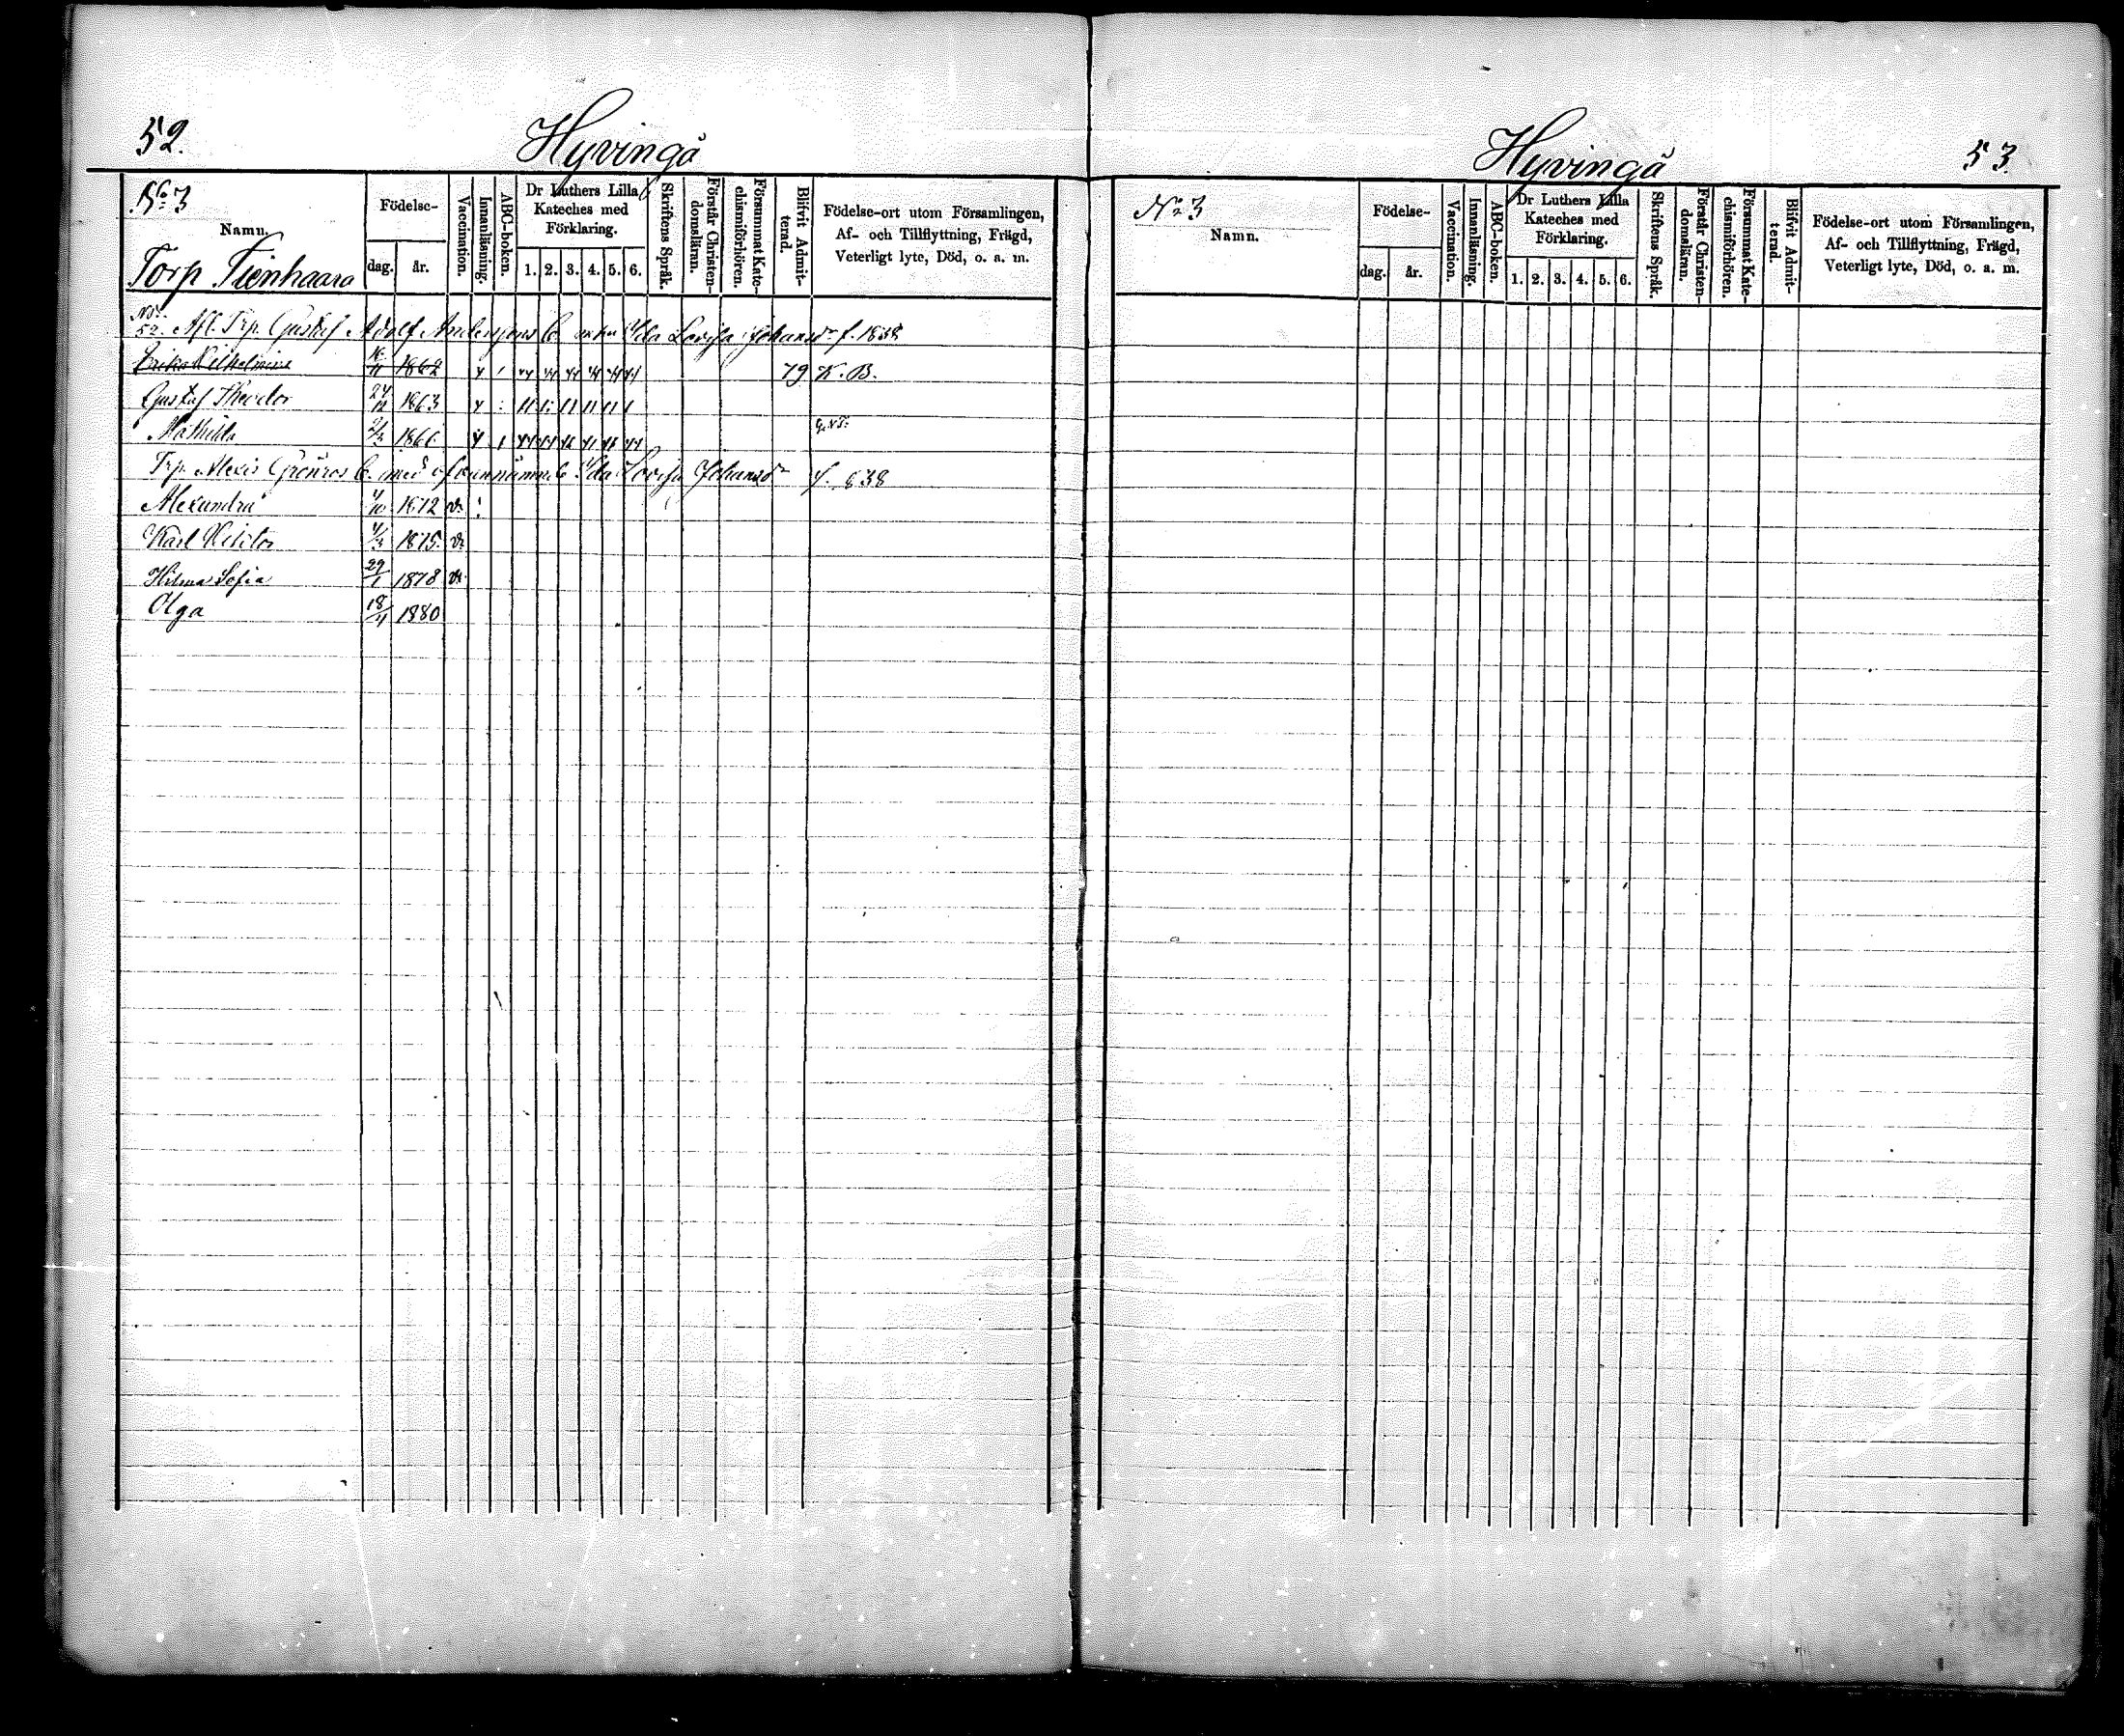 52.
Hyvingå
No 3
Namn.
Torp Tienhaara
Födelse-
dag.
år.
Vaccination.
Innanläsning.
ABC-boken.
Dr Luthers Lilla
Kateches med
Förklaring.
1. 2. 3. 4. 5. 6.
Skriftens Språk.
Förstår Christen-
domsläran.
Försummat Kate-
chismiförhören.
Blifvit Admit-
terad.
Födelse-ort utom Församlingen,
Af- och Tillflyttning, Frägd,
Veterligt lyte, Död, o. a. m.
No
52. Afl. Trp. Gustaf Adolf Anderssons b. enka Ida Lovisa Johansdr f. 1838
Erika Wilhelmina 1862 79 K. B.
Gustaf Theodor 24/12 1863
Mathilda 1866
Trp. Alexis Grönroos b. med ofvannämnde Ida Lovisa Johansdr f. 838
Alexandra 1872 v.
Karl Viktor 1875 v.
Hilma Sofia 29/1 1878 v.
Olga 18/4 1880
Hyvingå
53.
No 3
Namn.
Födelse-
dag.
år.
Vaccination.
Innanläsning.
ABC-boken.
Dr Luthers Lilla
Kateches med
Förklaring.
1. 2. 3. 4. 5. 6.
Skriftens Språk.
Förstår Christen-
domsläran.
Försummat Kate-
chismiförhören.
Blifvit Admit-
terad.
Födelse-ort utom Församlingen,
Af- och Tillflyttning, Frägd,
Veterligt lyte, Död, o. a. m.